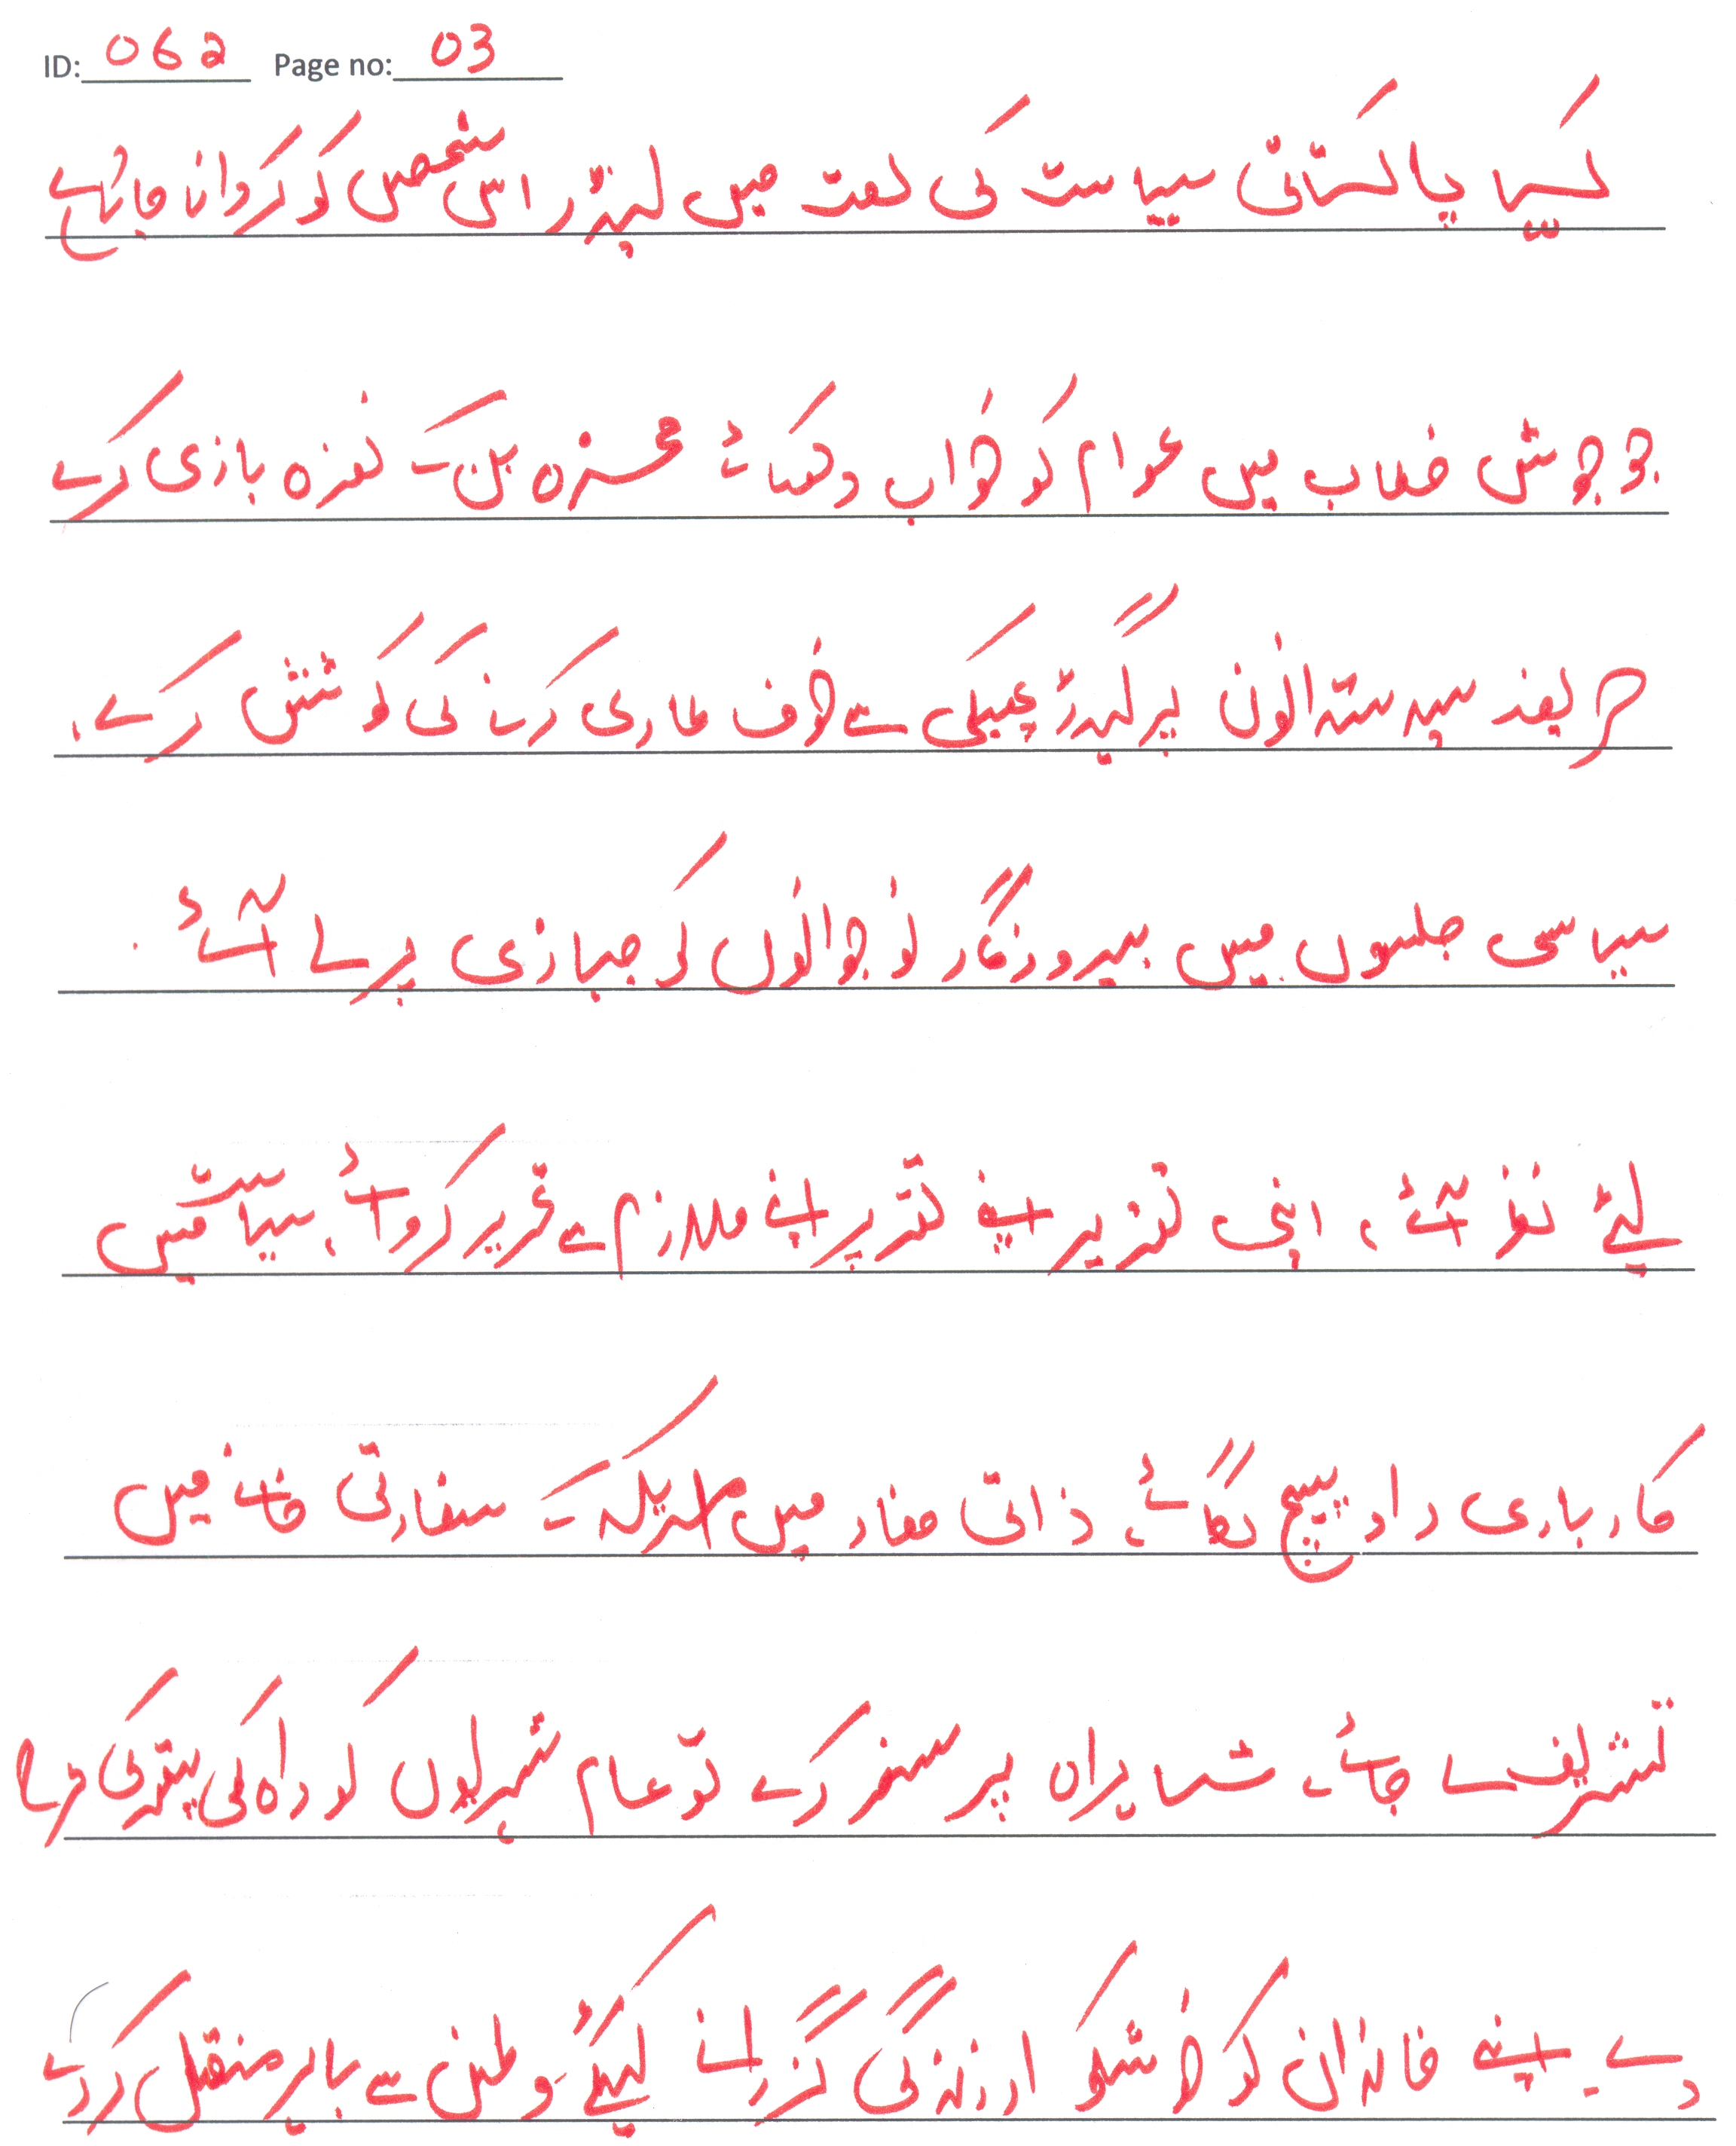 ID: 062 Page no: 03
کیسے پاکستانی سیاست کی لعنت میں لیڈر اس شخص کو گردانا جاتا ہے
جو جوش خطاب میں عوام کو خواب دکھائے نعرہ بازی کرے
حریف سیاستدانوں پر گیدڑ بھبکی سے خوف طاری کرنے کی کوشش کرے،
سیاسی جلسوں میں بیروزگار نوجوانوں کی جہازی پر لے آئے
لئے نظر آئے، اپنی اپنے اپنے ملازم سے تحریر کروائے، سیاست میں
کاروباری داو پیچ لگائے، ذاتی مفاد میں امریکہ کے سفارتی خانے میں
تشریف لے جائے، شاہراہ پر سفر کرے تو عام شہریوں کو راہ کی پتھر کی طرح
دے۔ اپنے خاندان کو خوشگوار زندگی گزارنے کیلئے وطن سے باہر منتقل کردے